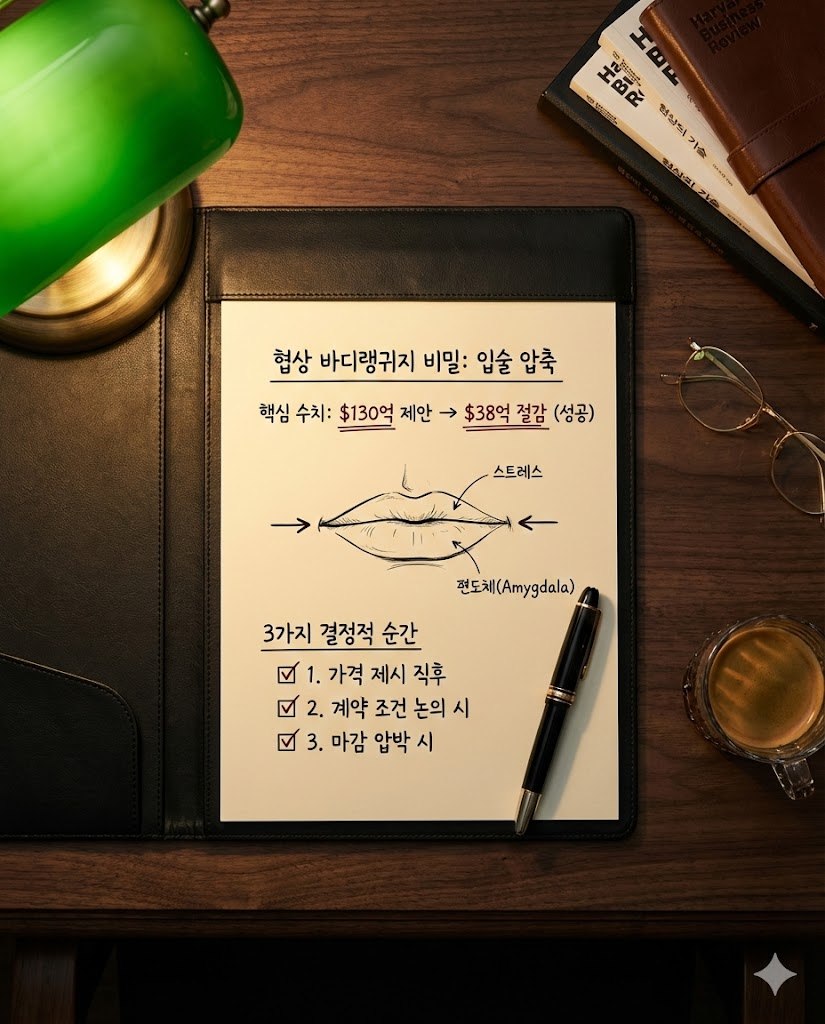 Harvard
Business
Review
협상의 기술
협상의 기술
협상 바디랭귀지 비밀: 입술 압축
핵심 수치: $130억 제안 → $38억 절감 (성공)
스트레스
편도체(Amygdala)
3가지 결정적 순간
☑ 1. 가격 제시 직후
☑ 2. 계약 조건 논의 시
☑ 3. 마감 압박 시